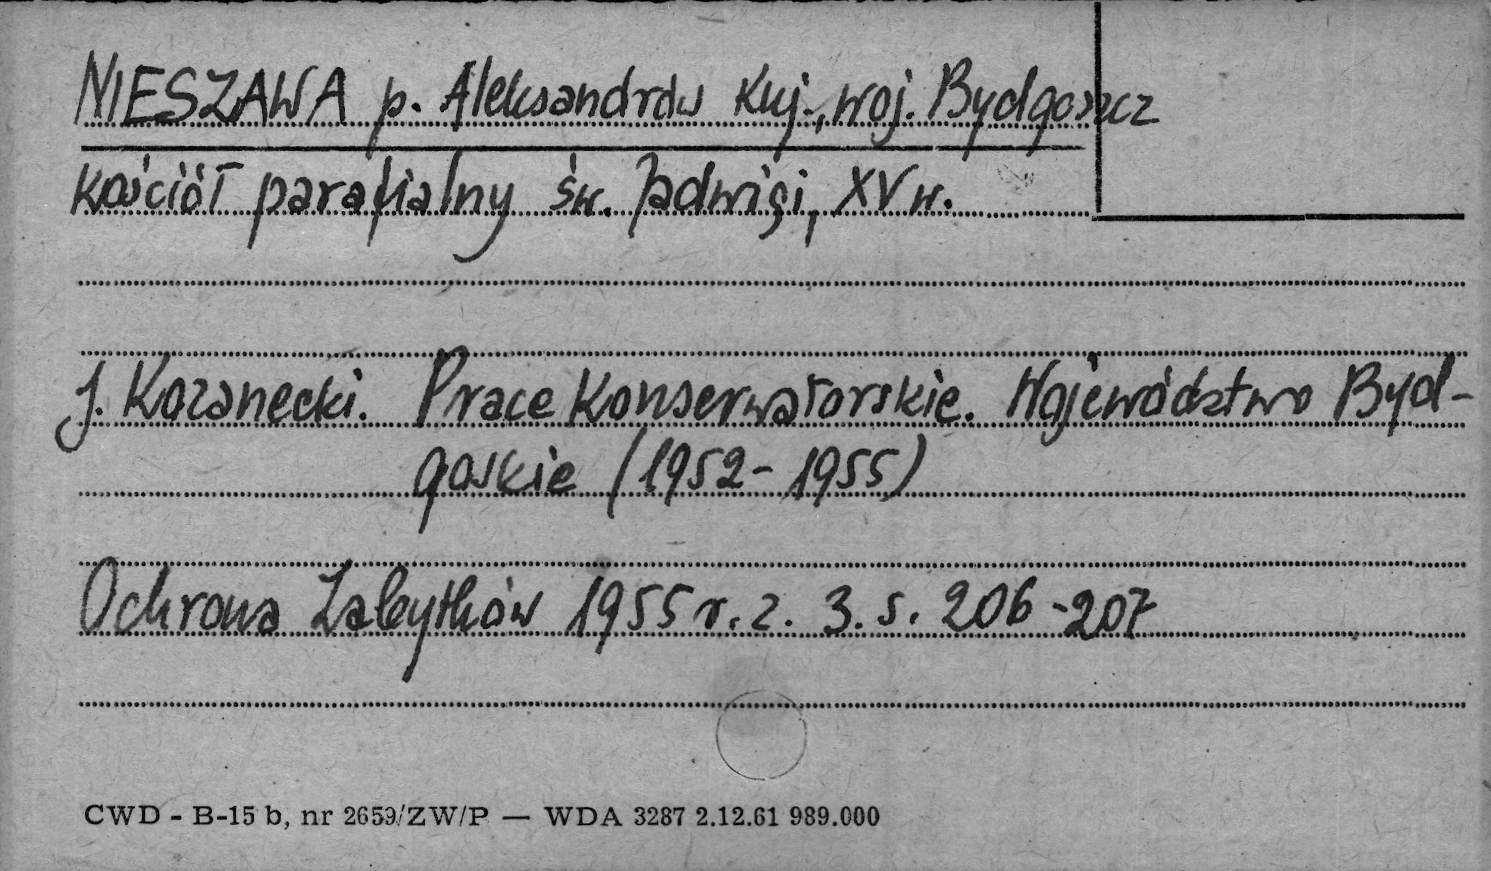 NIESZAWA p. Aleksandrów Kuj., woj. Bydgoszcz
kościół parafialny św. Jadwigi, XV w.
J. Kozanecki. Prace Konserwatorskie. Województwo Byd-
goskie (1952-1955)
Ochrona Zabytków 1955 r. z. 3. s. 206-207
CWD - B-15 b, nr 2659/ZW/P — WDA 3287 2.12.61 989.000